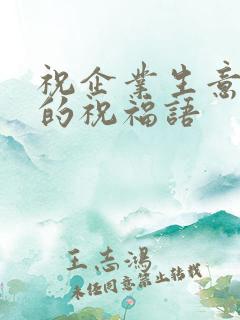 祝企業生意
的祝福語
王志鴻
未經同意禁止轉載